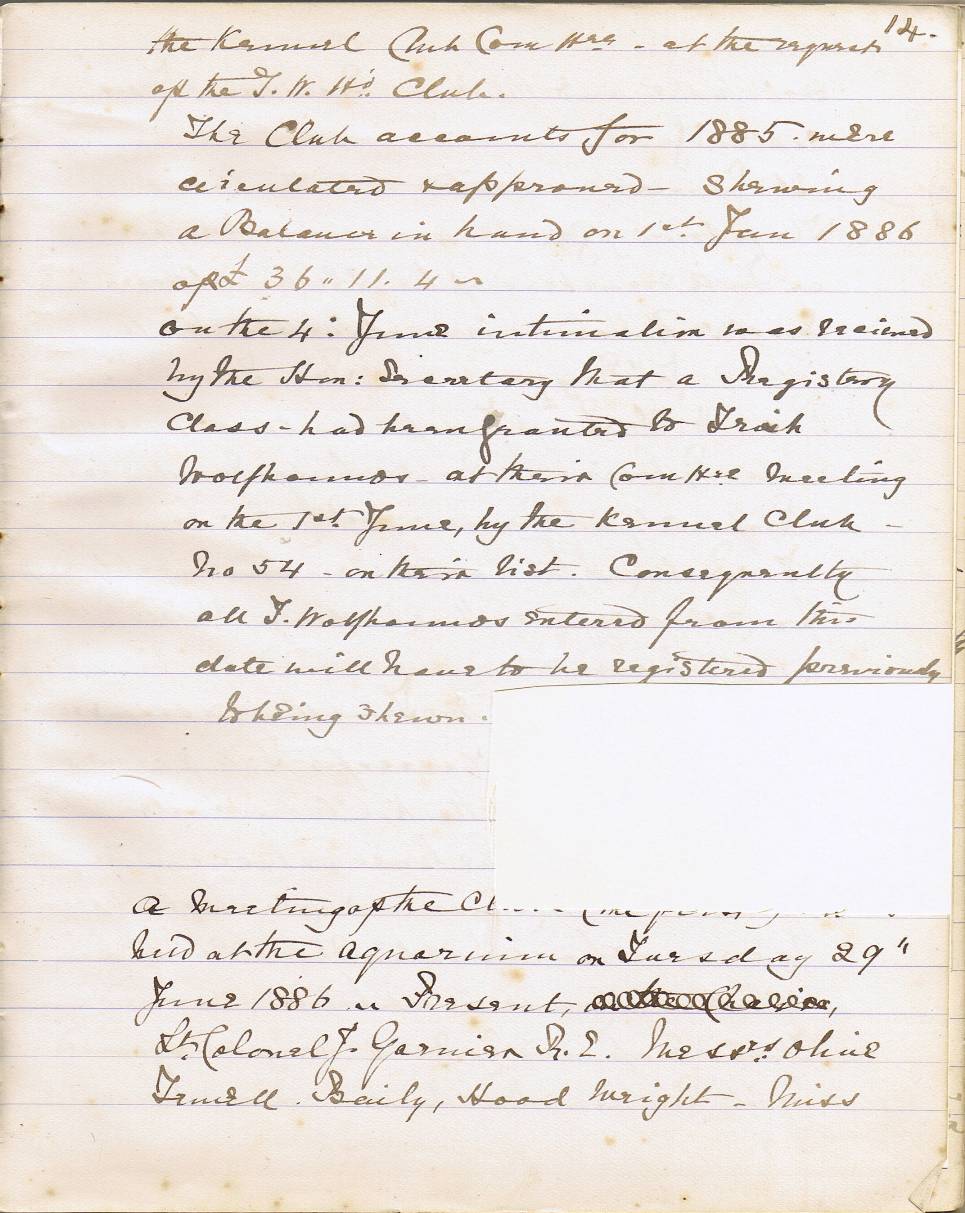 14.
the Kennel Club Comttee - at the request
of the I. W. Hd. Club.
The Club accounts for 1885. were
circulated & approved - Shewing
a Balance in hand on 1st. Jan 1886
of £ 36 " 11. 4 ~
on the 4: June intimation was recieved
by the Hon: Secretary that a Registery
Class - had been granted to Irish
Wolfhounds - at their Comttee Meeting
on the 1st. June, by the Kennel Club -
No 54 - on their list. Consequently
all I. Wolfhounds entered from this
date will have to be registered previously
to being shewn.
A Meeting of the Cl
held at the Aquarium on Tuesday 29"
June 1886 " Present,
Lt. Colonel J. Garnier R. E. Messrs. Olive
Irwell. Baily, Hood Wright - Miss